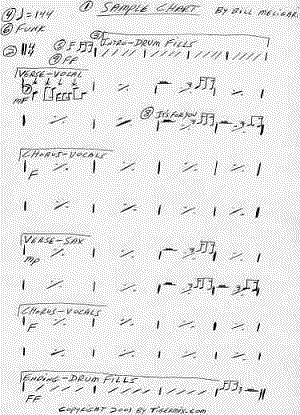 ① SAMPLE CHART BY BILL MELIGARI
④ ♩=144
⑥ FUNK
③ INTRO-DRUM FILLS
② ⑤
⑨ FF
VERSE-VOCAL
⑦
mF
⑧ IT'S FOR YOU
CHORUS-VOCALS
F
VERSE-SAX
mp
CHORUS-VOCALS
F
ENDING-DRUM FILLS
FF
COPYRIGHT 2001 BY TIGERMIX.COM